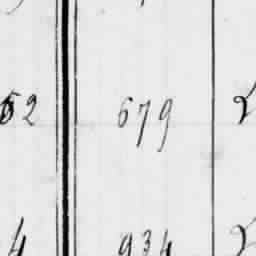 52 679
4 934